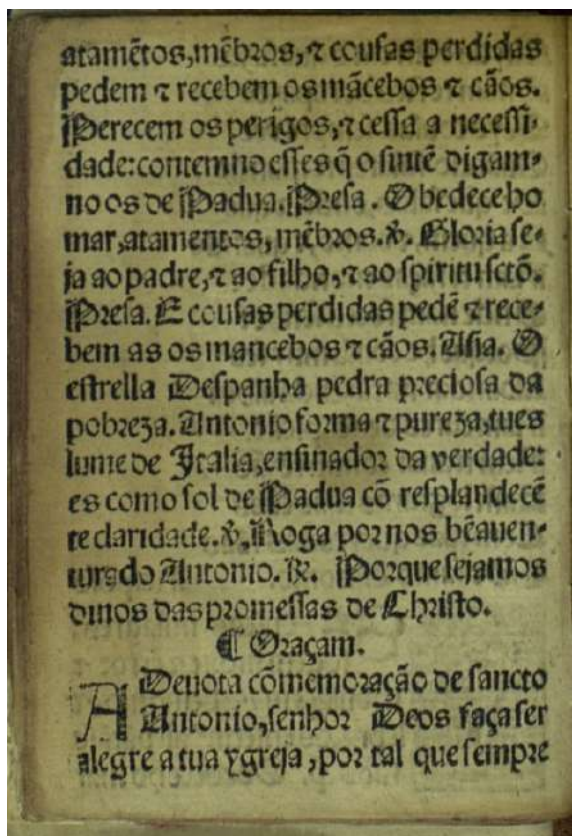 atamẽtos, mẽbros, ⁊ cousas perdidas
pedem ⁊ recebem os mãcebos ⁊ cãos.
Perecem os perigos, ⁊ cessa a necessi-
dade: contem no esses q̃ o sintẽ digam-
no os de Padua. Presa. Obedece ho
mar, atamentos, mẽbros. ℣. Gloria se-
ja ao padre, ⁊ ao filho, ⁊ ao spiritu sctõ.
Presa. E cousas perdidas pedẽ ⁊ rece-
bem as os mancebos ⁊ cãos. Aña. O
estrella Despanha pedra preciosa da
pobreza. Antonio forma ⁊ pureza, tu es
lume de Italia, ensinador da verdade:
es como sol de Padua cõ resplandecẽ
te claridade. ℣. Roga por nos bẽauen-
turado Antonio. ℟. Porque sejamos
dinos das promessas de Christo.
¶ Oraçam.
A Deuota cõmemoração de sancto
Antonio, senhor Deos faça ser
alegre a tua ygreja, por tal que sempre